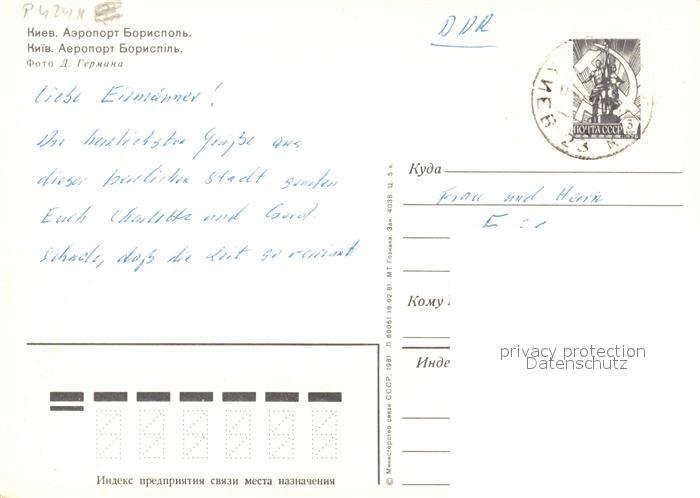 Киев. Аэропорт Борисполь.
Київ. Аеропорт Бориспіль.
Фото Д. Германа
DDR
Liebe Eismänner!
Die herzlichsten Grüße aus
dieser herrlichen Stadt senden
Euch Charlotte und Gerd.
Schade, daß die Zeit so verrinnt
КИЕВ
23
ПОЧТА СССР
Куда
Frau und Herrn
Кому
Инде
privacy protection
Datenschutz
Индекс предприятия связи места назначения
© Министерство связи СССР. 1981. Л 60051 18.02.81. МТ Гознака. Зак. 4036. Ц. 5 к.